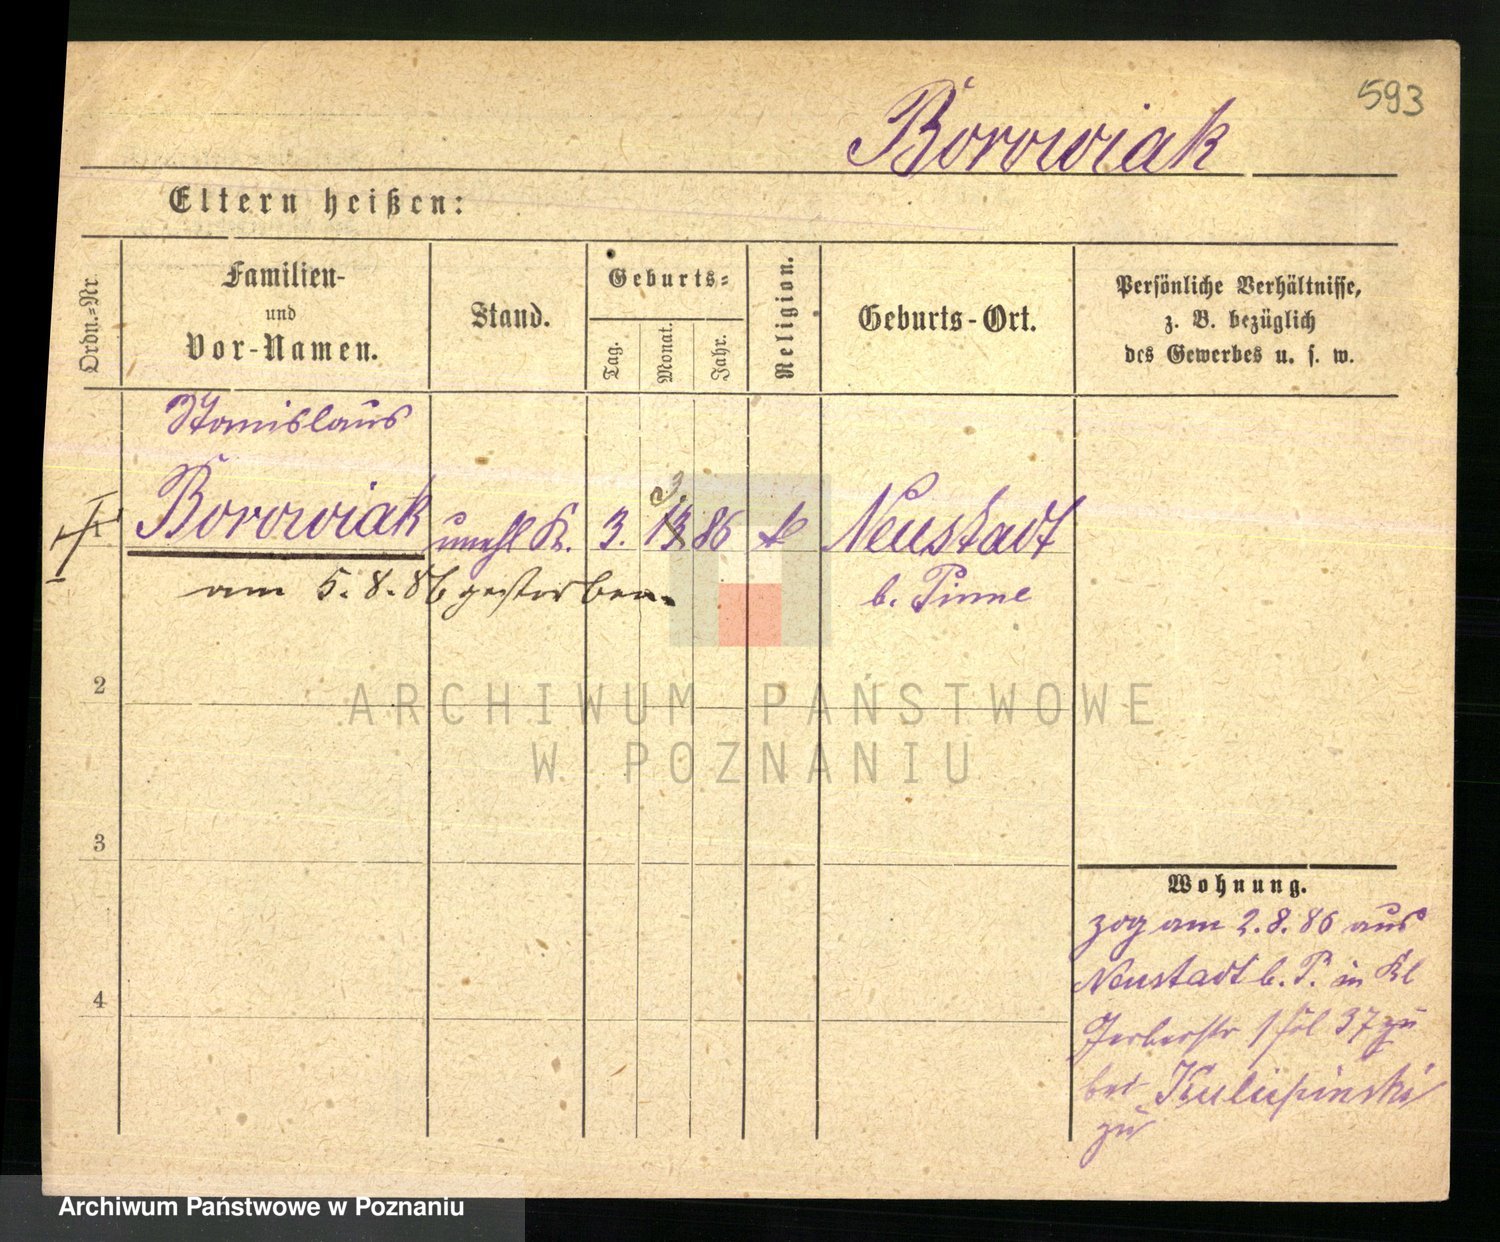 593
Borowiak
Eltern heißen:
Ordn.=Nr.
Familien-
und
Vor-Namen.
Stand.
Geburts=
Tag.
Monat.
Jahr.
Religion.
Geburts-Ort.
Persönliche Verhältnisse,
z. B. bezüglich
des Gewerbes u. s. w.
Stanislaus
1 Borowiak unehl K. 3. 3 86 Neustadt
am 5.8.86 gestorben. b. Pinne
2
ARCHIWUM PAŃSTWOWE
W POZNANIU
3
Wohnung.
zog am 2.8.86 aus
Neustadt b. P. in Kl
Gerberstr 37 zu
bei
zu
4
Archiwum Państwowe w Poznaniu